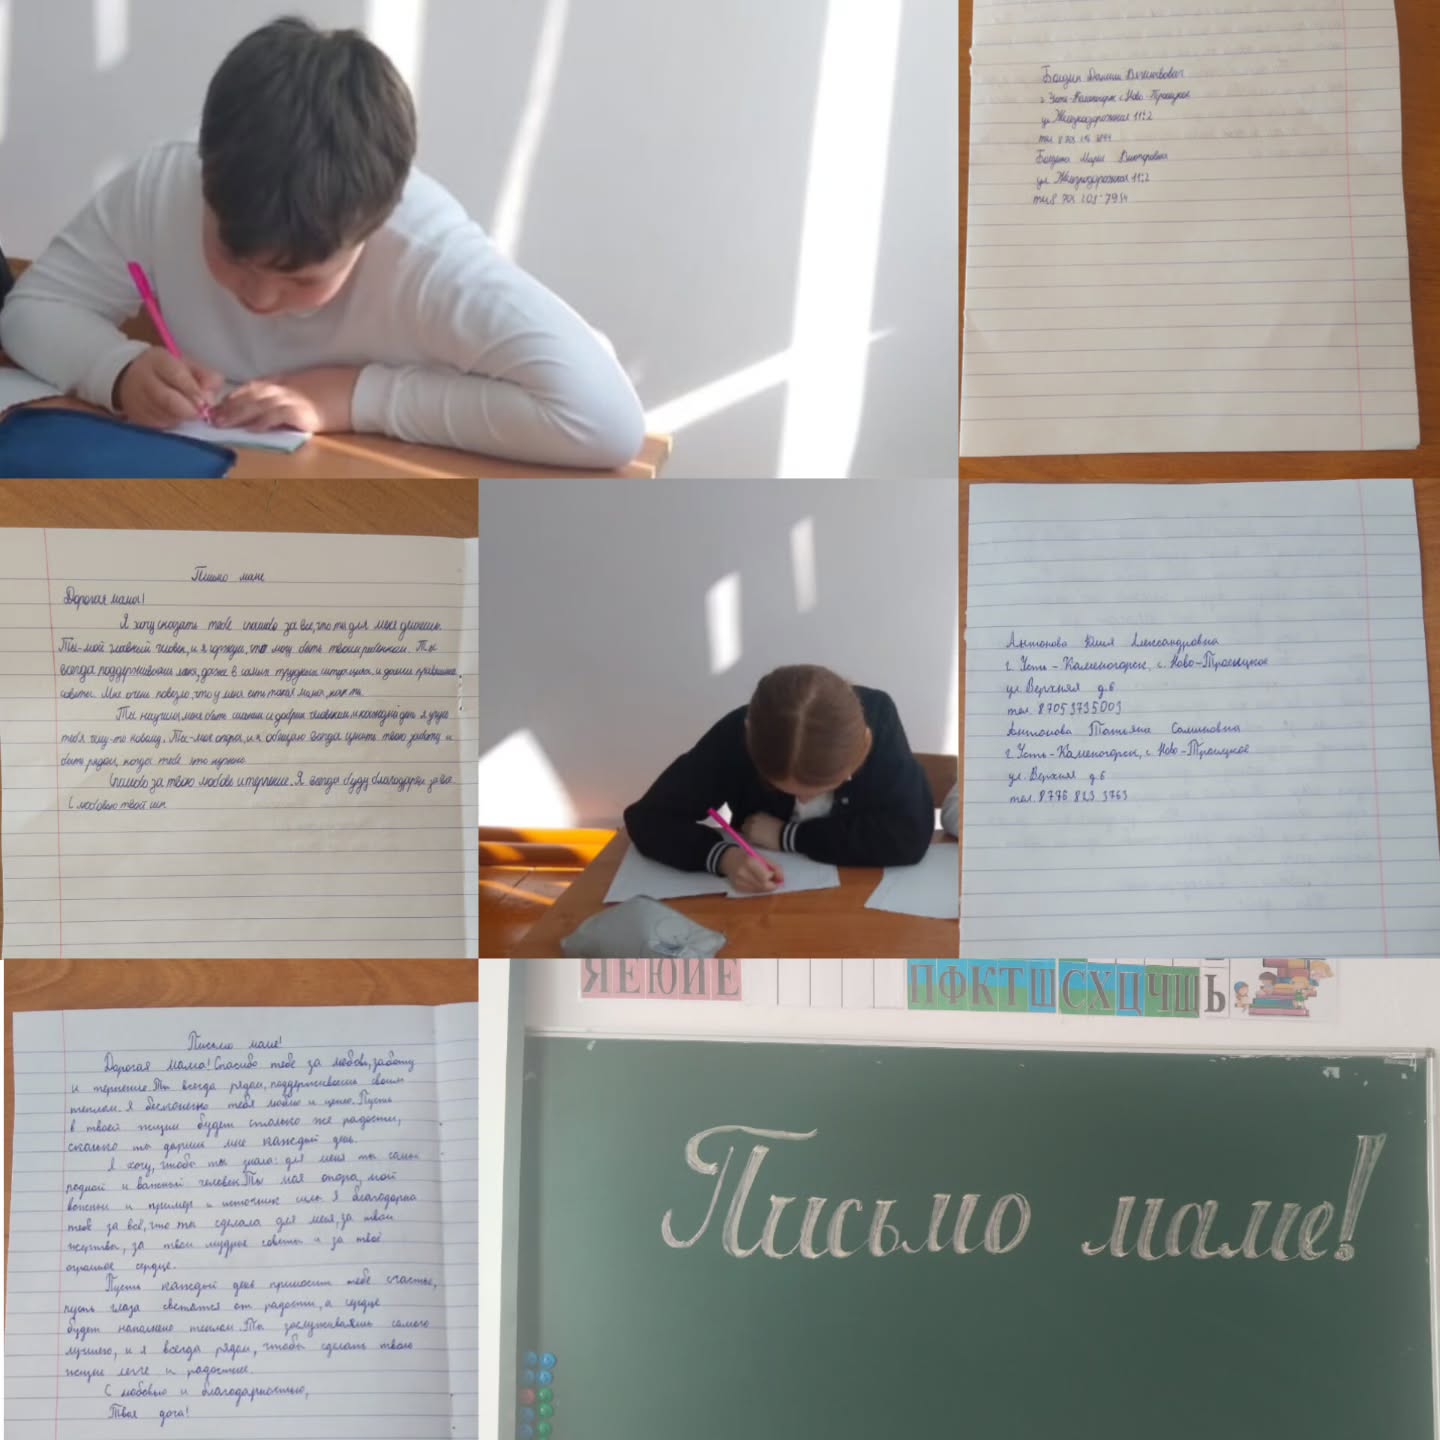 Боцзин Данил Вячеславович
г Усть-Каменогорск с Ново-Троицкое
ул Железнодорожная 11-2
тел 8 705
Марья Викторовна
ул Железнодорожная 11-2
тел 8 705 101-7914
Письмо маме
Дорогая мама!
Я хочу сказать тебе спасибо за все, что ты для меня делаешь.
Ты-мой главный человек, и я горжусь, что могу быть твоим ребенком. Ты
всегда поддерживаешь меня, даже в самых трудных ситуациях, и даешь правильные
советы. Мне очень повезло, что у меня есть такая мама, как ты.
Ты научила меня быть сильным и добрым человеком и каждый день я учусь
тебя чему-то новому. Ты-моя опора, и я обещаю всегда ценить твою заботу и
быть рядом, когда тебе это нужно.
Спасибо за твою любовь и терпение. Я всегда буду благодарен за все
С любовью твой сын
Антонова Юлия Александровна
г. Усть-Каменогорск, с. Ново-Троицкое
ул Верхняя д.6
тел. 87053735003
Антонова Татьяна
г. Усть-Каменогорск, с. Ново-Троицкое
ул. Верхняя д.6
тел. 8.776 823 3763
Письмо маме!
Дорогая мама! Спасибо тебе за любовь, заботу
и терпение. Ты всегда рядом, поддерживаешь своим
теплом. Я бесконечно тебя люблю и ценю. Пусть
в твоей жизни будет столько же радости,
сколько ты даришь мне каждый день.
Я хочу, чтобы ты знала: для меня ты самый
родной и важный человек. Ты моя опора, мой
и пример и источник сил. Я благодарна
тебе за всё, что ты сделала для меня, за твои
жертвы, за твои мудрые советы и за твоё
огромное сердце.
Пусть каждый день приносит тебе счастье,
пусть глаза светятся от радости, а сердце
будет наполнено теплом. Ты заслуживаешь самого
лучшего, и я всегда рядом, чтобы сделать твою
жизнь легче и радостнее.
С любовью и благодарностью,
Твоя доча!
ЯЕЮИЕ
ПФКТШСХЦЧЩЬ
Письмо маме!